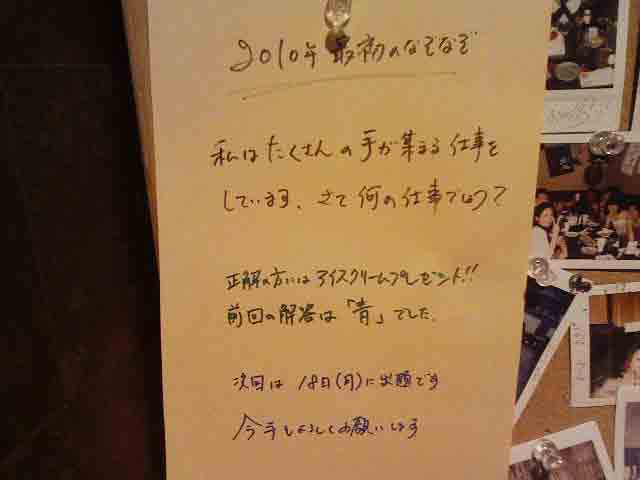 2010年 最初のなぞなぞ
私はたくさんの手が集まる仕事を
しています、さて何の仕事でしょう?
正解の方にはアイスクリームプレゼント!!
前回の解答は「青」でした。
次回は 18日(月)に出題です
今年もよろしくお願いします